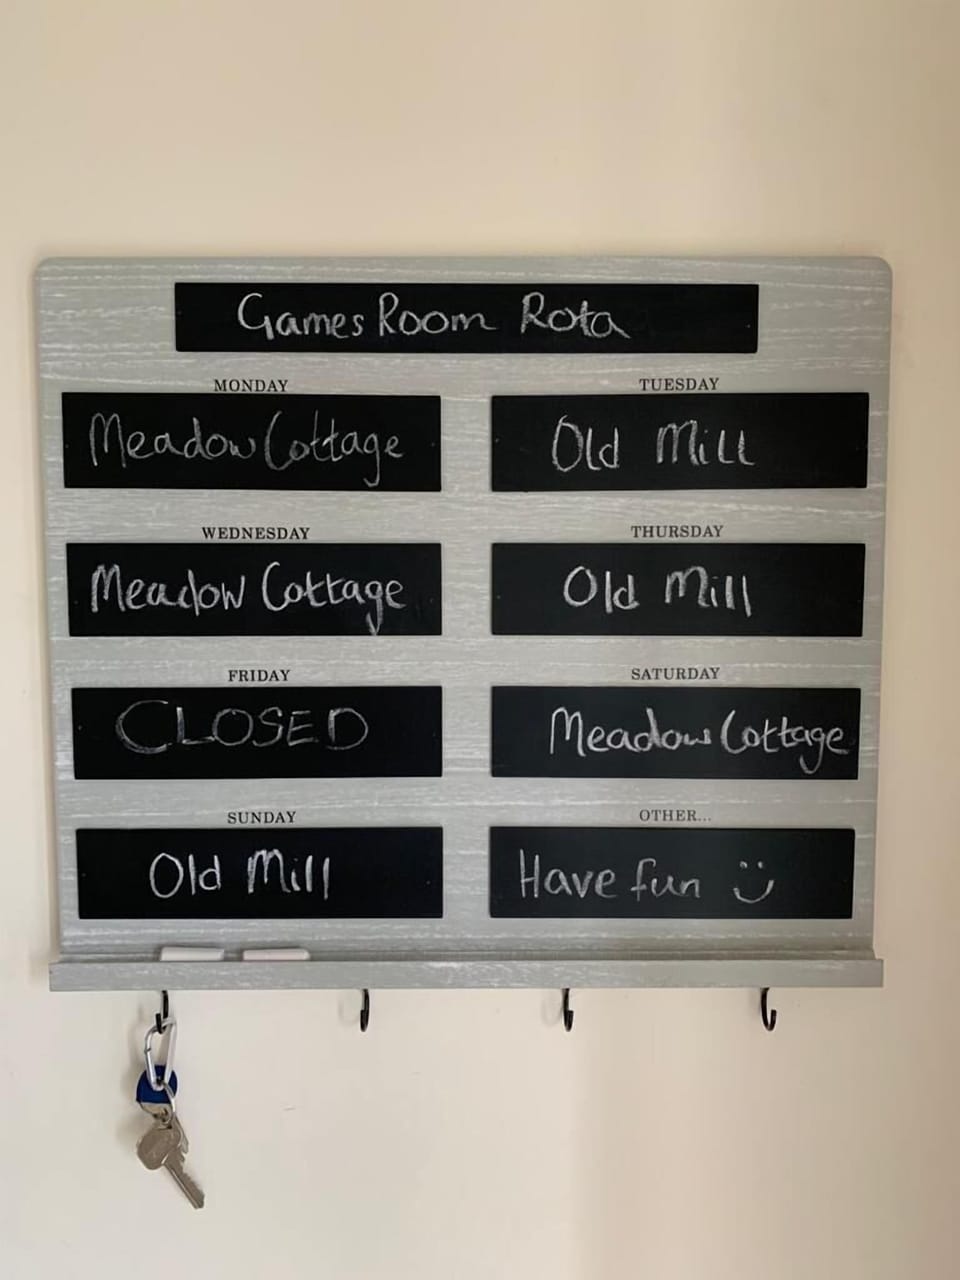 Games Room Rota
MONDAY
Meadow Cottage
TUESDAY
Old Mill
WEDNESDAY
Meadow Cottage
THURSDAY
Old Mill
FRIDAY
CLOSED
SATURDAY
Meadow Cottage
SUNDAY
Old Mill
OTHER...
Have fun